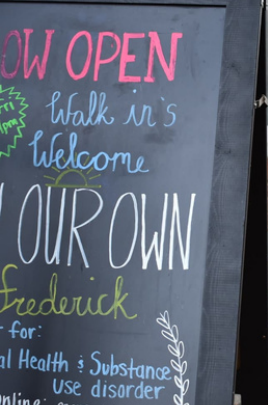 OW OPEN
Fri
1pm
Walk in's
Welcome
OUR OWN
Frederick
for:
al Health & Substance
use disorder
nline: